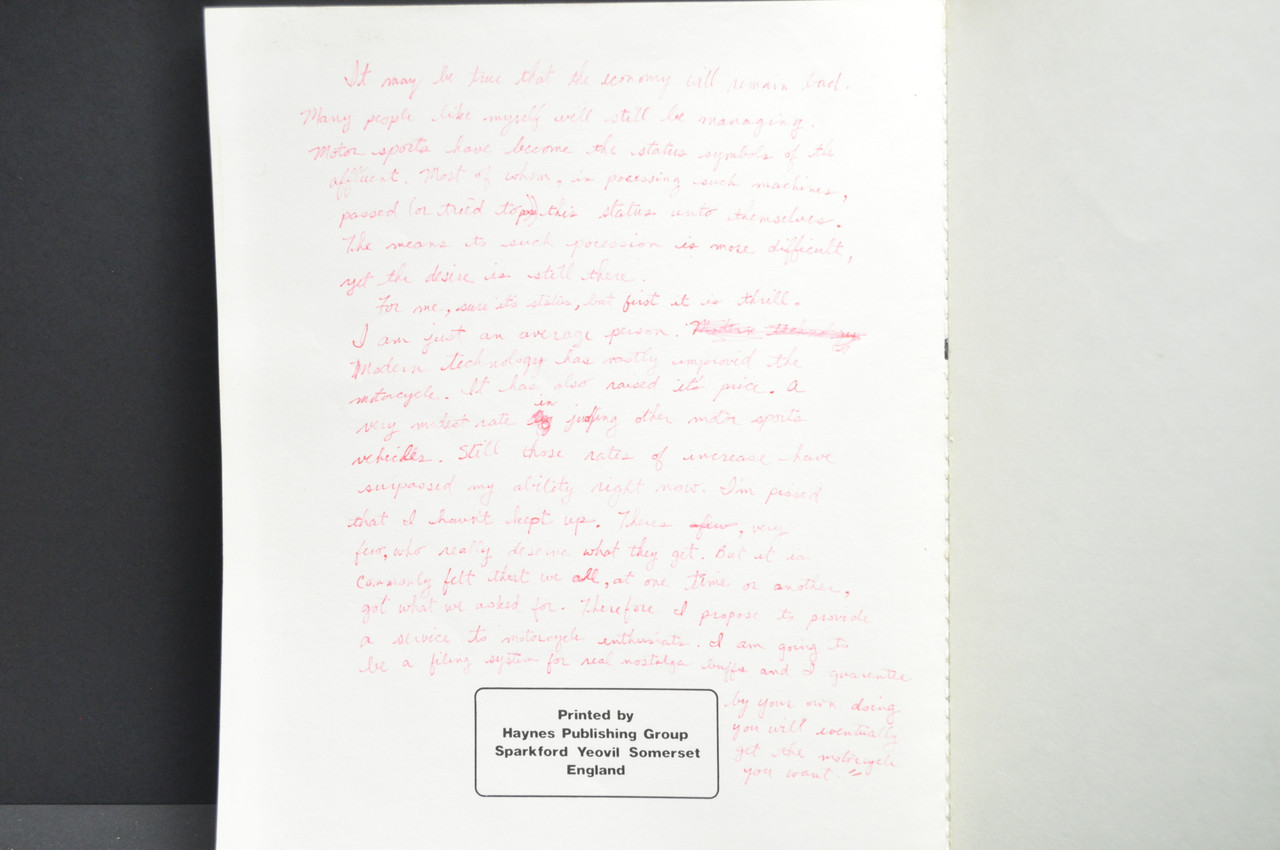 It may be true that the economy will remain bad.
Many people like myself will still be managing.
Motor sports have become the status symbols of the
affluent. Most of whom, in pocessing such machines,
passed (or tried to) this status unto themselves.
The means to such pocession is more difficult,
yet the desire is still there.
For me, sure it's status, but first it is thrill.
I am just an average person. Modern technology
Modern technology has vastly improved the
motorcycle. It has also raised it's price. A
very modest rate in judging other motor sports
vehicles. Still those rates of increase have
surpassed my ability right now. I'm pissed
that I havn't kept up. Theres few, very
few, who really deserve what they get. But it is
commonly felt that we all, at one time or another,
got what we asked for. Therefore I propose to provide
a service to motorcycle enthusiats. I am going to
be a filing system for real nostalga buffs and I guarentee
by your own doing
you will eventually
get the motorcycle
you want.
Printed by
Haynes Publishing Group
Sparkford Yeovil Somerset
England